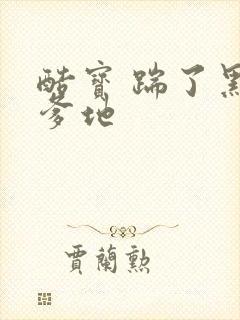 酷寶 踹了黑
爹地
賈蘭勲